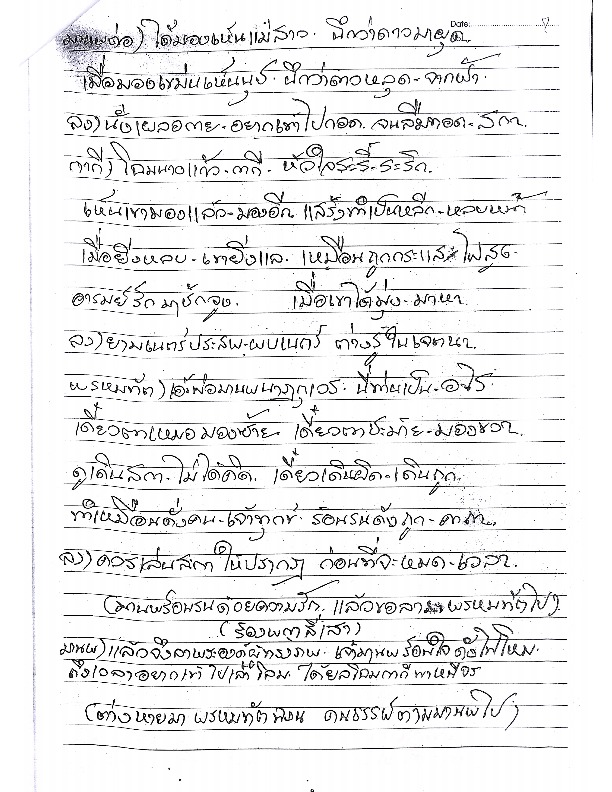 มานพต่อ) ได้มองเห็นแม่สาว. นึกว่าดาวมายุด. Date:
เมื่อมองเขม่นเห็นนุช. นึกว่าดาวหลุด-จากฟ้า.
ลง) นั่งเผลอกาย-อยากเข้าไปกอด. จนลืมทอด-สกา.
กากี) โฉมนางแก้ว-กากี. หัวใจระรี้-ระริก.
เห็นเขามองแล้ว-มองอีก. แสร้งทำเป็นหลีก-หลบหน้า
เมื่อยิ่งหลบ-เขายิ่งแล. เหมือนถูกกระแสไฟสูง-
อารมย์รักมาชักจูง. เมื่อเขาได้มุ่ง-มาหา.
ลง) ยามเนตร์ประสพ-พบเนตร์ ต่างรู้ในเจตนา.
พรหมทัต) เอ๊ะพ่อมานพ นี่ท่านเป็น-อะไร.
เดี๋ยวตาเหม่อมองซ้าย เดี๋ยวตาชะม้าย-มองขวา.
ดูเดินสกา-ไม่ได้คิด. เดี๋ยวเดินผิด-เดินถูก.
ทำเหมือนดั่งคน-เจ้าทุกข์ ร้อนรนดังถูก-คาถา.
ลง) ควรเล่นสกาให้ปรากฏ ก่อนที่จะหมด-เวลา.
(มานพร้อนรนด้วยความรัก. แล้วขอลาพรหมทัตไป)
(ร้องพญาสี่เสา)
มานพ) แล้วจึงลาพระองค์ผู้ทรงภพ. เจ้ามานพร้อนใจดั่งไฟไหม้.
ถึงเวลาอยากเข้าไปเล้าโลม. ได้ยลโฉมกากีพาหนีจร
(ต่างหายมา พรหมทัต คนธรรพ์ตามมานพไป)